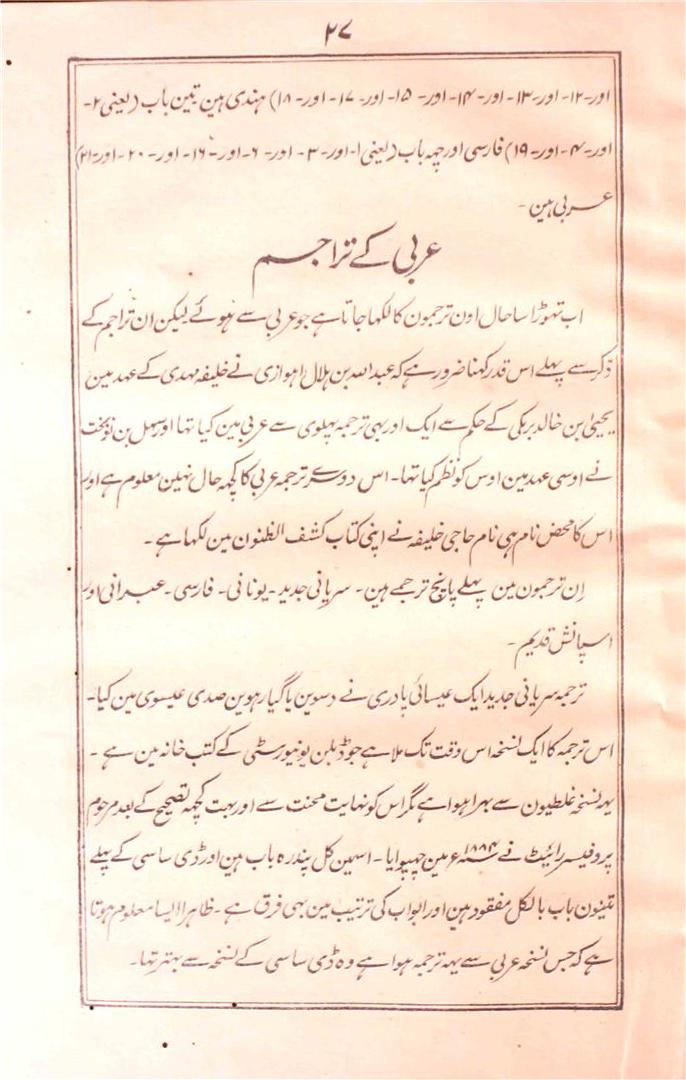 ۲۷
اور-۱۲- اور-۱۳- اور-۱۴- اور- ۱۵- اور- ۱۷- اور- ۱۸) ہندی ہین تین باب (یعنی ۲-
اور-۴- اور-۱۹) فارسی اور چہہ باب (یعنی ۱- اور-۳- اور- ۶- اور-۱۶- اور- ۲۰- اور-۲۱)
عربی ہین -
عربی کے تراجم
اب تہوڑا سا حال اون ترجمون کا لکہا جاتا ہے جو عربی سے ہوئے لیکن ان تراجم کے
ذکر سے پہلے اس قدر کہنا ضرور ہے کہ عبد اللہ بن ہلال اہوازی نے خلیفہ مہدی کے عہد مین
یحییٰ بن خالد برمکی کے حکم سے ایک اور بہی ترجمہ پہلوی سے عربی مین کیا تہا اور سہل بن نوبخت
نے اوسی عہد مین اوس کو نظم کیا تہا- اس دوسرے ترجمہ عربی کا کچہہ حال نہین معلوم ہے اور
اس کا محض نام ہی نام حاجی خلیفہ نے اپنی کتاب کشف الظنون مین لکہا ہے -
اِن ترجمون مین پہلے پانچ ترجمے ہین - سریانی جدید - یونانی - فارسی - عبرانی اور
اسپانش قدیم -
ترجمہ سریانی جدید ایک عیسائی پادری نے دسوین یا گیارہوین صدی عیسوی مین کیا-
اس ترجمہ کا ایک نسخہ اس وقت تک ملا ہے جو ڈبلن یونیورسٹی کے کتب خانہ مین ہے -
یہہ نسخہ غلطیون سے بہرا ہوا ہے مگر اس کو نہایت محنت سے اور بہت کچہہ تصحیح کے بعد مرحوم
پروفیسر رائیٹ نے ۱۸۸۴ء مین چہپوایا - اسمین کل پندرہ باب ہین اور ڈی ساسی کے پہلے
تینون باب بالکل مفقود ہین اور ابواب کی ترتیب مین بہی فرق ہے - ظاہرا ایسا معلوم ہوتا
ہے کہ جس نسخہ عربی سے یہہ ترجمہ ہوا ہے وہ ڈی ساسی کے نسخہ سے بہتر تہا -